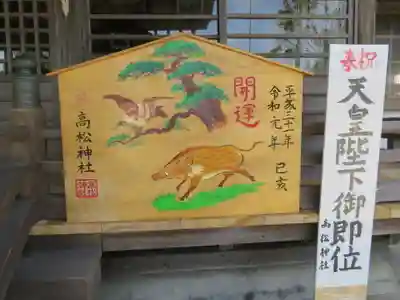 開運
平成三十一年
令和元年
己亥
高松神社
奉祝
天皇陛下御即位
高松神社